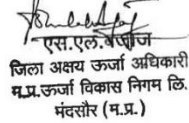 एस.एल.बजाज
जिला अक्षय ऊर्जा अधिकारी
म.प्र.ऊर्जा विकास निगम लि.
मंदसौर (म.प्र.)